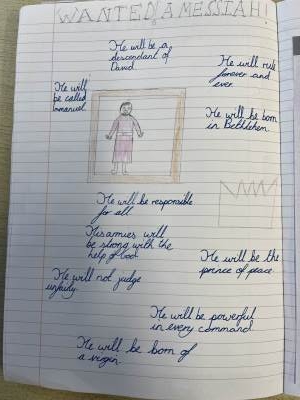 WANTED! A MESSIAH!
He will be a
descendant of
David.
He will rule
forever and
ever.
He will
be called
Immanuel.
He will be born
in Bethlehem.
He will be responsible
for all.
His armies will
be strong with the
help of God.
He will be the
prince of peace.
He will not judge
unfairly.
He will be powerful
in every command.
He will be born of
a virgin.